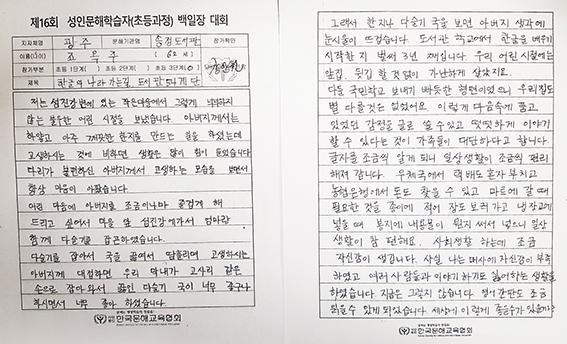 제16회 성인문해학습자(초등과정) 백일장 대회
지자체명 광주 문해기관명 송정도서관 참가확인
이름(나이) 조옥주 (62세)
참가부분 초등 1단계( ) 초등 2단계( ) 초등 3단계(O)
제목 한글의 나라 가는길, 도서관 5나게 단
저는 섬진강변에 있는 작은마을에서 그렇게 부하지
않는 불우한 어린 시절을 보냈습니다. 아버지께서는
하얗고 아주 깨끗한 한지를 만드는 일을 하였는데
고생하시는 것에 비하면 생활은 많이 힘이 들었습니다
다리가 불편하신 아버지께서 고생하는 모습을 보면서
항상 마음이 아팠습니다.
어린 마음에 아버지를 조금이나마 즐겁게 해
드리고 싶어서 마을 앞 섬진강에가서 엄마랑
함께 다슬기를 잡곤하였습니다.
다슬기를 잡아서 국을 끓여서 땀흘리며 고생하시는
아버지께 대접하면 우리 막내가 고사리 같은
손으로 잡아와서 끓인 다슬기 국이 너무 좋구나
하시면서 너무 좋아 하셨습니다.
한국문해교육협회
그래서 한지나 다슬기 국을 보면 아버지 생각에
눈시울이 뜨겁습니다. 도서관 학교에서 한글을 배우기
시작한 지 벌써 3년 째입니다. 우리 어린 시절에는
앞집, 뒷집 할 것 없이 가난하게 살았지요.
다들 국민학교 보내기 빠듯한 형편이였으니 우리집도
별 다를것은 없었어요. 이렇게 마음속에 품고
있었던 감정을 글로 쓸 수 있고 떳떳하게 이야기
할 수 있다는 것이 가족들이 대단하다고 합니다.
글자를 조금의 알게 되니 일상생활이 조금의 편리
해져 갑니다. 우체국에서 택배도 혼자 부치고
농협은행에서 돈도 찾을 수 있고 마트에 갈 때
필요한 것을 종이에 적어 장도 보러 가고 냉장고에
넣을 때 봉지에 내용물이 뭔지 써서 넣으니 일상
생활이 참 편해요. 사회생활 하는데 조금
자신감이 생깁니다. 사실, 나는 매사에 자신감이 부족
하였고 여러 사람들과 이야기 하기도 싫어하는 생활을
하였습니다 지금은 그렇지 않습니다. 영어 간판도 조금
읽을 수 있게 되었습니다. 세상에 이렇게 좋을수가 있을까?
한국문해교육협회